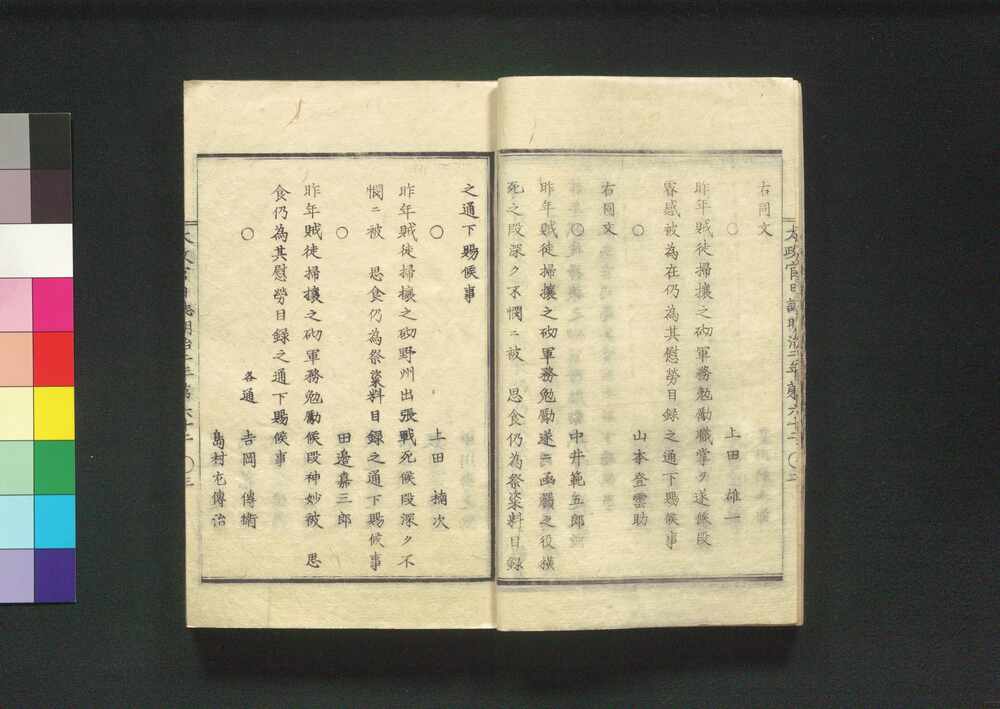 右同文
○ 上田 雄一
昨年賊徒掃攘之砌軍務勉勵職掌ヲ遂候段
睿感被為在仍為其慰勞目録之通下賜候事
○ 山本登雲助
右同文
○ 中井範五郎
昨年賊徒掃攘之砌軍務勉勵遂ニ函嶺之役横
死之段深ク不憫ニ被 思食仍為祭粢料目録
太政官日誌明治二年第六十二
之通下賜候事
○ 上田 楠次
昨年賊徒掃攘之砌野州出張戰死候段深ク不
憫ニ被 思食仍為祭粢料目録之通下賜候事
○ 田邉嘉三郎
昨年賊徒掃攘之砌軍務勉勵候段神妙被 思
食仍為其慰勞目録之通下賜候事
○ 各通 吉岡 傳衛
島村屯傳治